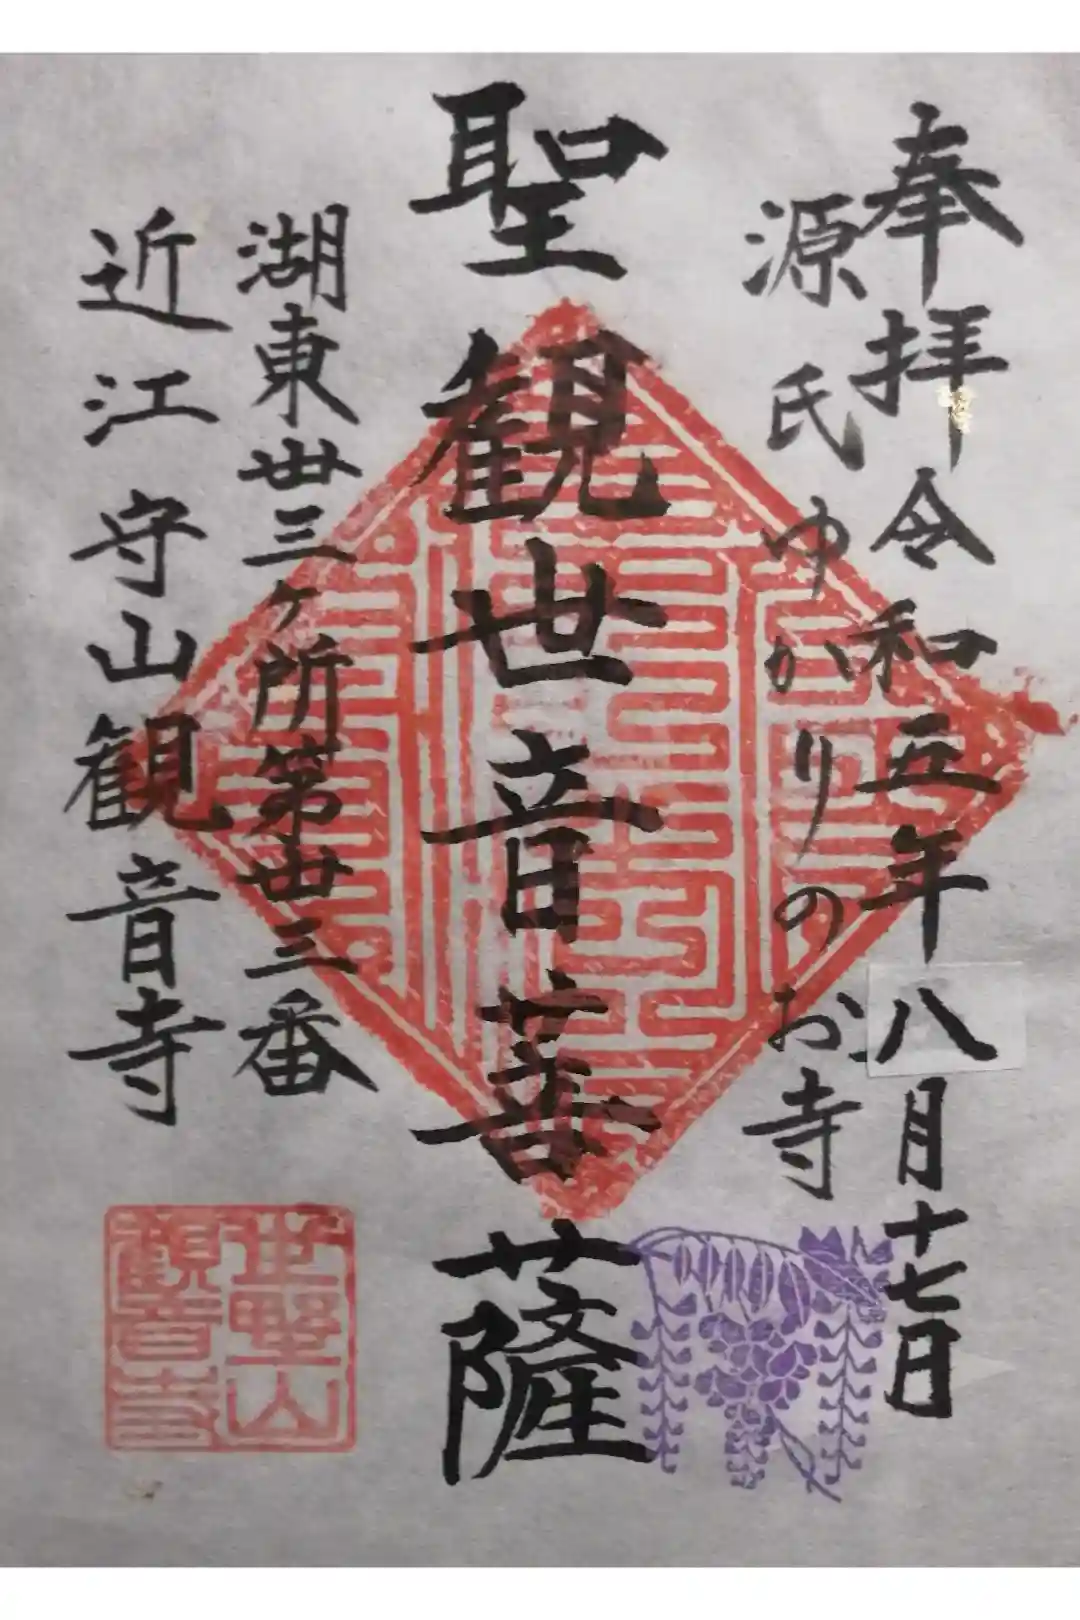 奉拝 令和五年 八月十七日
源氏ゆかりのお寺
聖観世音菩薩
湖東卅三ヶ所第卅三番
近江守山観音寺
観音寺